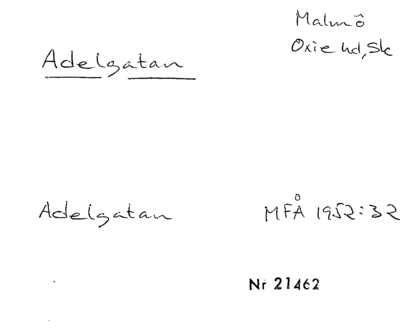 Malmö
Oxie hd, Sk
Adelgatan
Adelgatan MFÅ 1952:32
Nr 21462